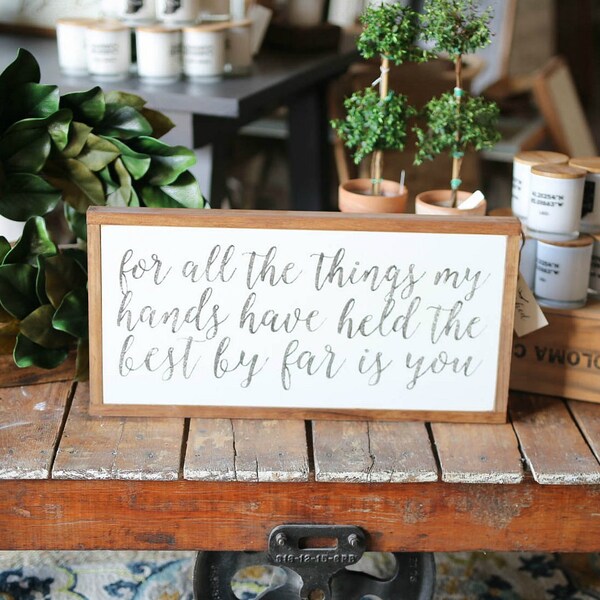 for all the things my
hands have held the
best by far is you
OLOMA C